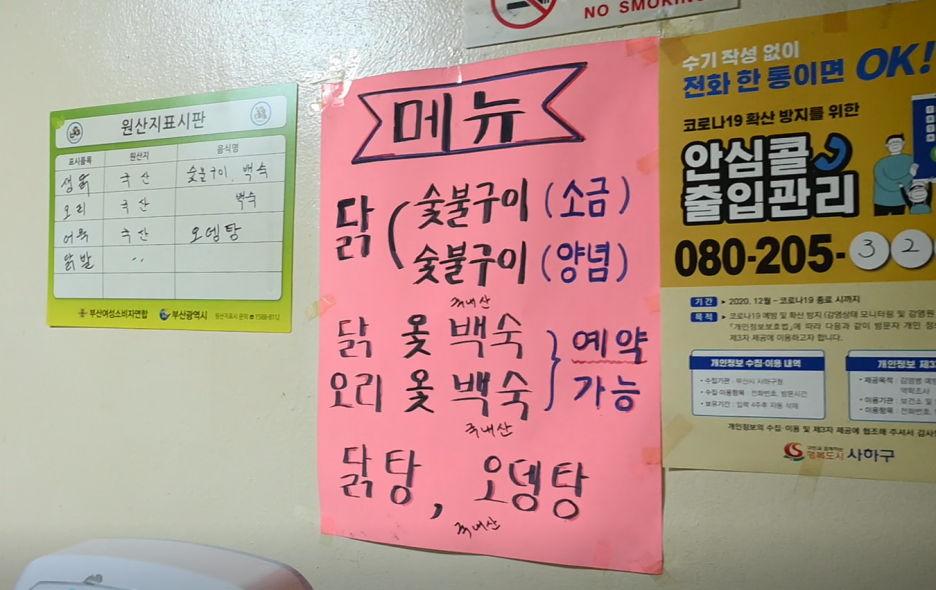 NO SMOKING
원산지표시판
표시품목 원산지 음식명
생닭 국산 숯불구이, 백숙
오리 국산 백숙
어묵 국산 오뎅탕
닭발 〃
부산여성소비자연합 부산광역시 원산지표시 문의 ☎1588-8112
메뉴
닭 ( 숯불구이 (소금)
숯불구이 (양념)
국내산
닭 옻 백숙 } 예약
오리 옻 백숙 가능
국내산
닭탕, 오뎅탕
국내산
수기 작성 없이
전화 한 통이면 OK!
코로나19 확산 방지를 위한
안심콜
출입관리
080-205-32
기간 ▸ 2020. 12월 ~ 코로나19 종료 시까지
목적 ▸ 코로나19 예방 및 확산 방지 (감염상태 모니터링 및 감염원
「개인정보보호법」에 따라 다음과 같이 방문자 개인 정
제3자 제공에 이용하고자 합니다.
개인정보 수집·이용 내역
• 수집기관 : 부산시 사하구청
• 수집·이용항목 : 전화번호, 방문시간
• 보유기간 : 입력 4주후 자동 삭제
개인정보 제3
• 제공목적 : 감염병 예방
역학조사
• 이용기관 : 보건소 및
• 이용항목 : 전화번호,
개인정보의 수집·이용 및 제3자 제공에 협조해 주셔서 감사
행복도시 사하구